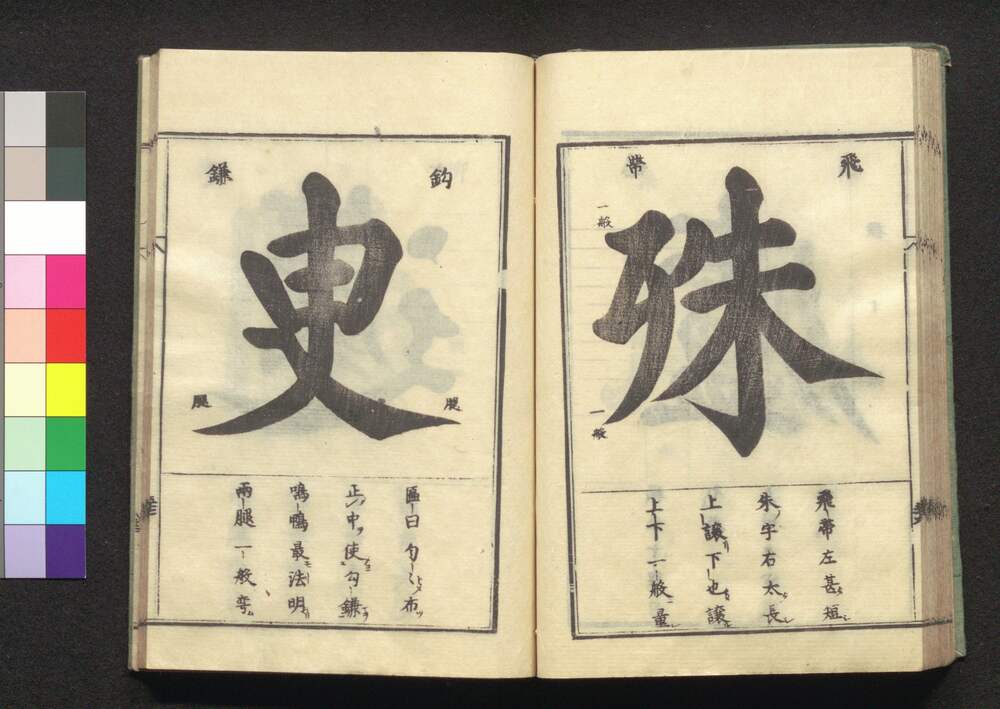 飛帶
殊
一般
一般
飛帶左甚短
朱字右太長
上讓下也讓
上下一般量
鈎鎌
吏
腿
腿
正中使勾鎌
最法明
兩腿一般彎